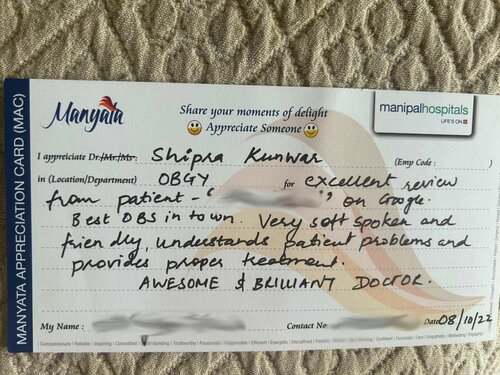 MANYATA APPRECIATION CARD (MAC)
Manyata
Share your moments of delight
Appreciate Someone
manipalhospitals
LIFE'S ON
I appreciate Dr./Mr./Ms. Shipra Kunwar (Emp Code : )
in (Location/Department) OBGY for excellent review
from patient - " " on Google.
Best OBS in town. Very soft spoken and
friendly, understands patient problems and
provides proper treatment.
AWESOME & BRILLIANT DOCTOR.
My Name : Contact No Date 08/10/22
| Compassionate | Reliable | Inspiring | Committed | standing | Trustworthy | Passionate | Responsible | Efficient | Energetic | Disciplined | Flexible